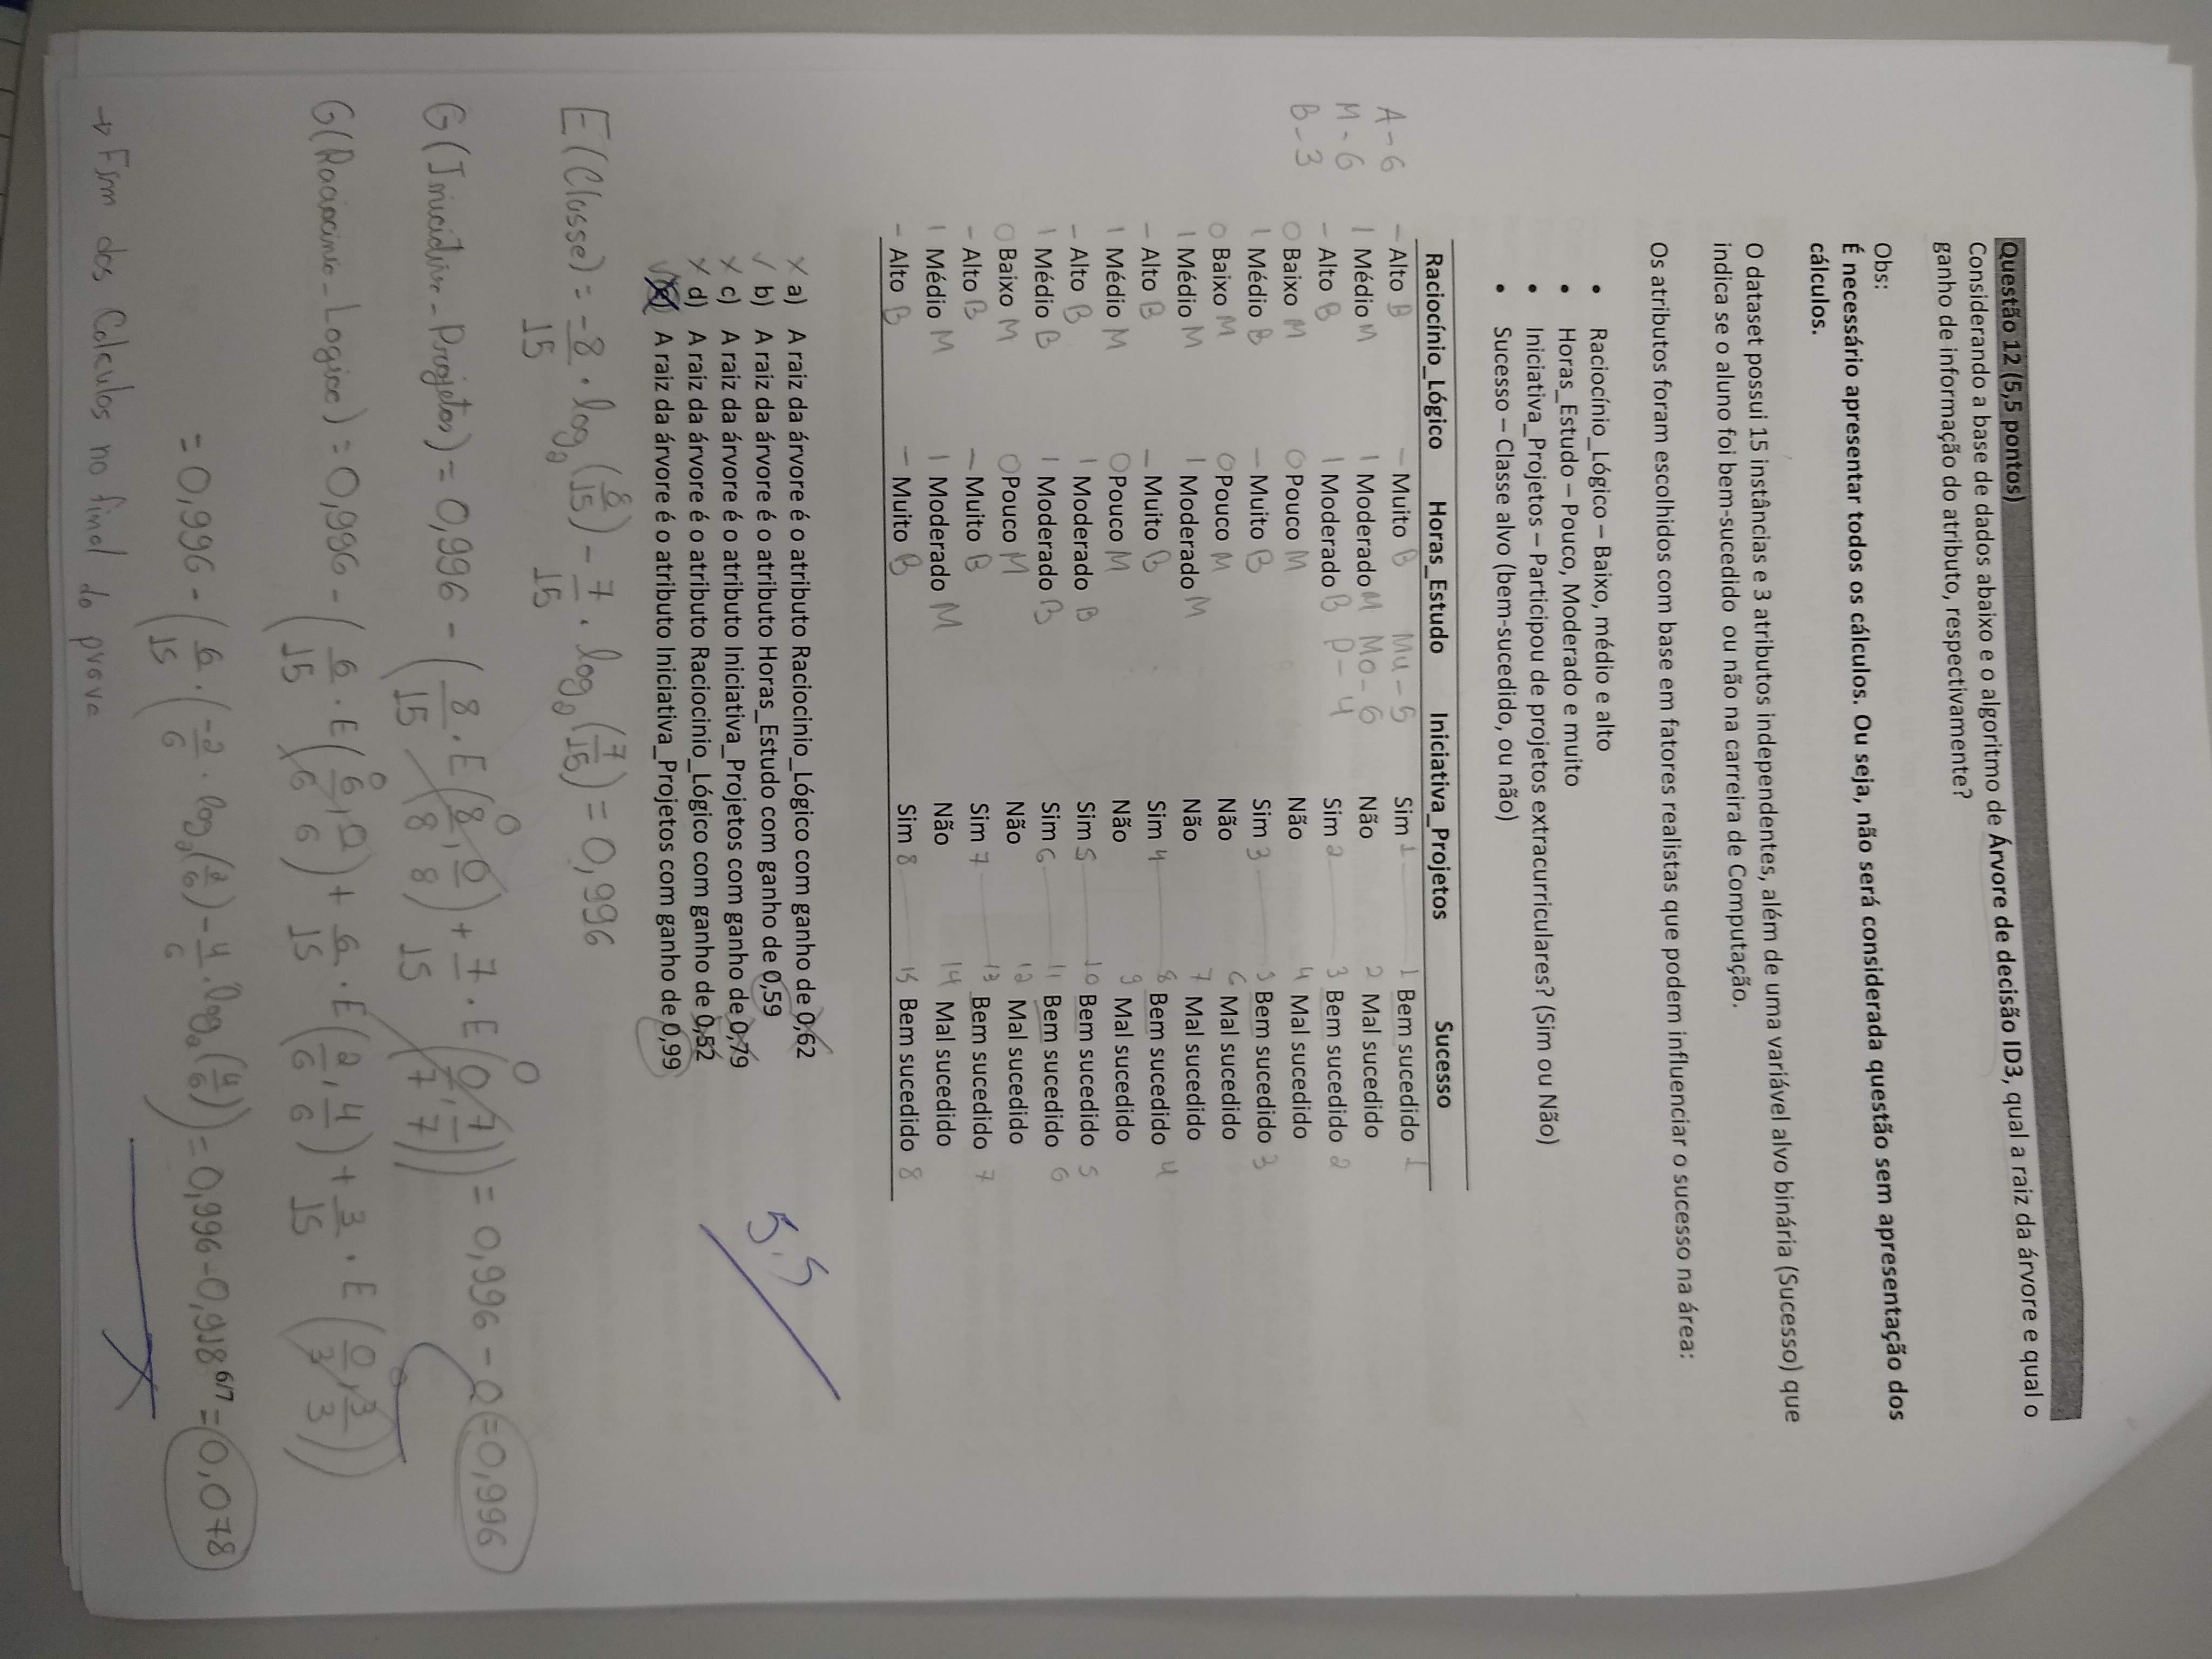 Questão 12 (5,5 pontos)
Considerando a base de dados abaixo e o algoritmo de Árvore de decisão ID3, qual a raiz da árvore e qual o
ganho de informação do atributo, respectivamente?
Obs:
É necessário apresentar todos os cálculos. Ou seja, não será considerada questão sem apresentação dos
cálculos.
O dataset possui 15 instâncias e 3 atributos independentes, além de uma variável alvo binária (Sucesso) que
indica se o aluno foi bem-sucedido ou não na carreira de Computação.
Os atributos foram escolhidos com base em fatores realistas que podem influenciar o sucesso na área:
• Raciocínio_Lógico – Baixo, médio e alto
• Horas_Estudo – Pouco, Moderado e muito
• Iniciativa_Projetos – Participou de projetos extracurriculares? (Sim ou Não)
• Sucesso – Classe alvo (bem-sucedido, ou não)
Raciocínio_Lógico Horas_Estudo Iniciativa_Projetos Sucesso
A-6 – Alto B – Muito B Mu-5 Sim 1 1 Bem sucedido 1
M-6 | Médio M | Moderado M Mo-6 Não 2 Mal sucedido
B-3 – Alto B | Moderado B P-4 Sim 2 3 Bem sucedido 2
O Baixo M O Pouco M Não 4 Mal sucedido
| Médio B – Muito B Sim 3 5 Bem sucedido 3
O Baixo M O Pouco M Não 6 Mal sucedido
| Médio M | Moderado M Não 7 Mal sucedido
– Alto B – Muito B Sim 4 8 Bem sucedido 4
| Médio M O Pouco M Não 9 Mal sucedido
– Alto B | Moderado B Sim 5 10 Bem sucedido 5
| Médio B | Moderado B Sim 6 11 Bem sucedido 6
O Baixo M O Pouco M Não 12 Mal sucedido
– Alto B – Muito B Sim 7 13 Bem sucedido 7
| Médio M | Moderado M Não 14 Mal sucedido
– Alto B – Muito B Sim 8 15 Bem sucedido 8
X a) A raiz da árvore é o atributo Raciocinio_Lógico com ganho de 0,62
✓ b) A raiz da árvore é o atributo Horas_Estudo com ganho de 0,59
X c) A raiz da árvore é o atributo Iniciativa_Projetos com ganho de 0,79
X d) A raiz da árvore é o atributo Raciocinio_Lógico com ganho de 0,52
✓ e) A raiz da árvore é o atributo Iniciativa_Projetos com ganho de 0,99
5.5
E(Classe) = -8/15 · log₂(8/15) - 7/15 · log₂(7/15) = 0,996
G(Iniciativa-Projetos) = 0,996 - (8/15 · E(8/8, 0/8) 0 + 7/15 · E(0/7, 7/7) 0) = 0,996 - 0 = 0,996
G(Raciocinio-Logico) = 0,996 - (6/15 · E(6/6, 0/6) 0 + 6/15 · E(2/6, 4/6) + 3/15 · E(0/3, 3/3) 0)
= 0,996 - (6/15 · (-2/6 · log₂(2/6) - 4/6 · log₂(4/6)) = 0,996 - 0,918 = 0,078
6/7
→ Fim dos Calculos no final da prova